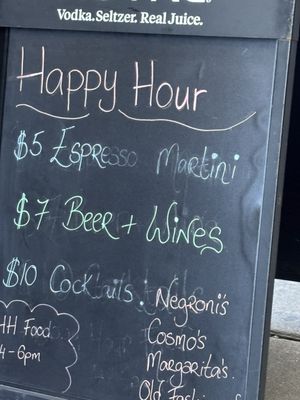 Vodka. Seltzer. Real Juice.
Happy Hour
$5 Espresso Martini
$7 Beer + Wines
$10 Cocktails.
Negroni's
Cosmo's
Margarita's.
Old
HH Food
4-6pm